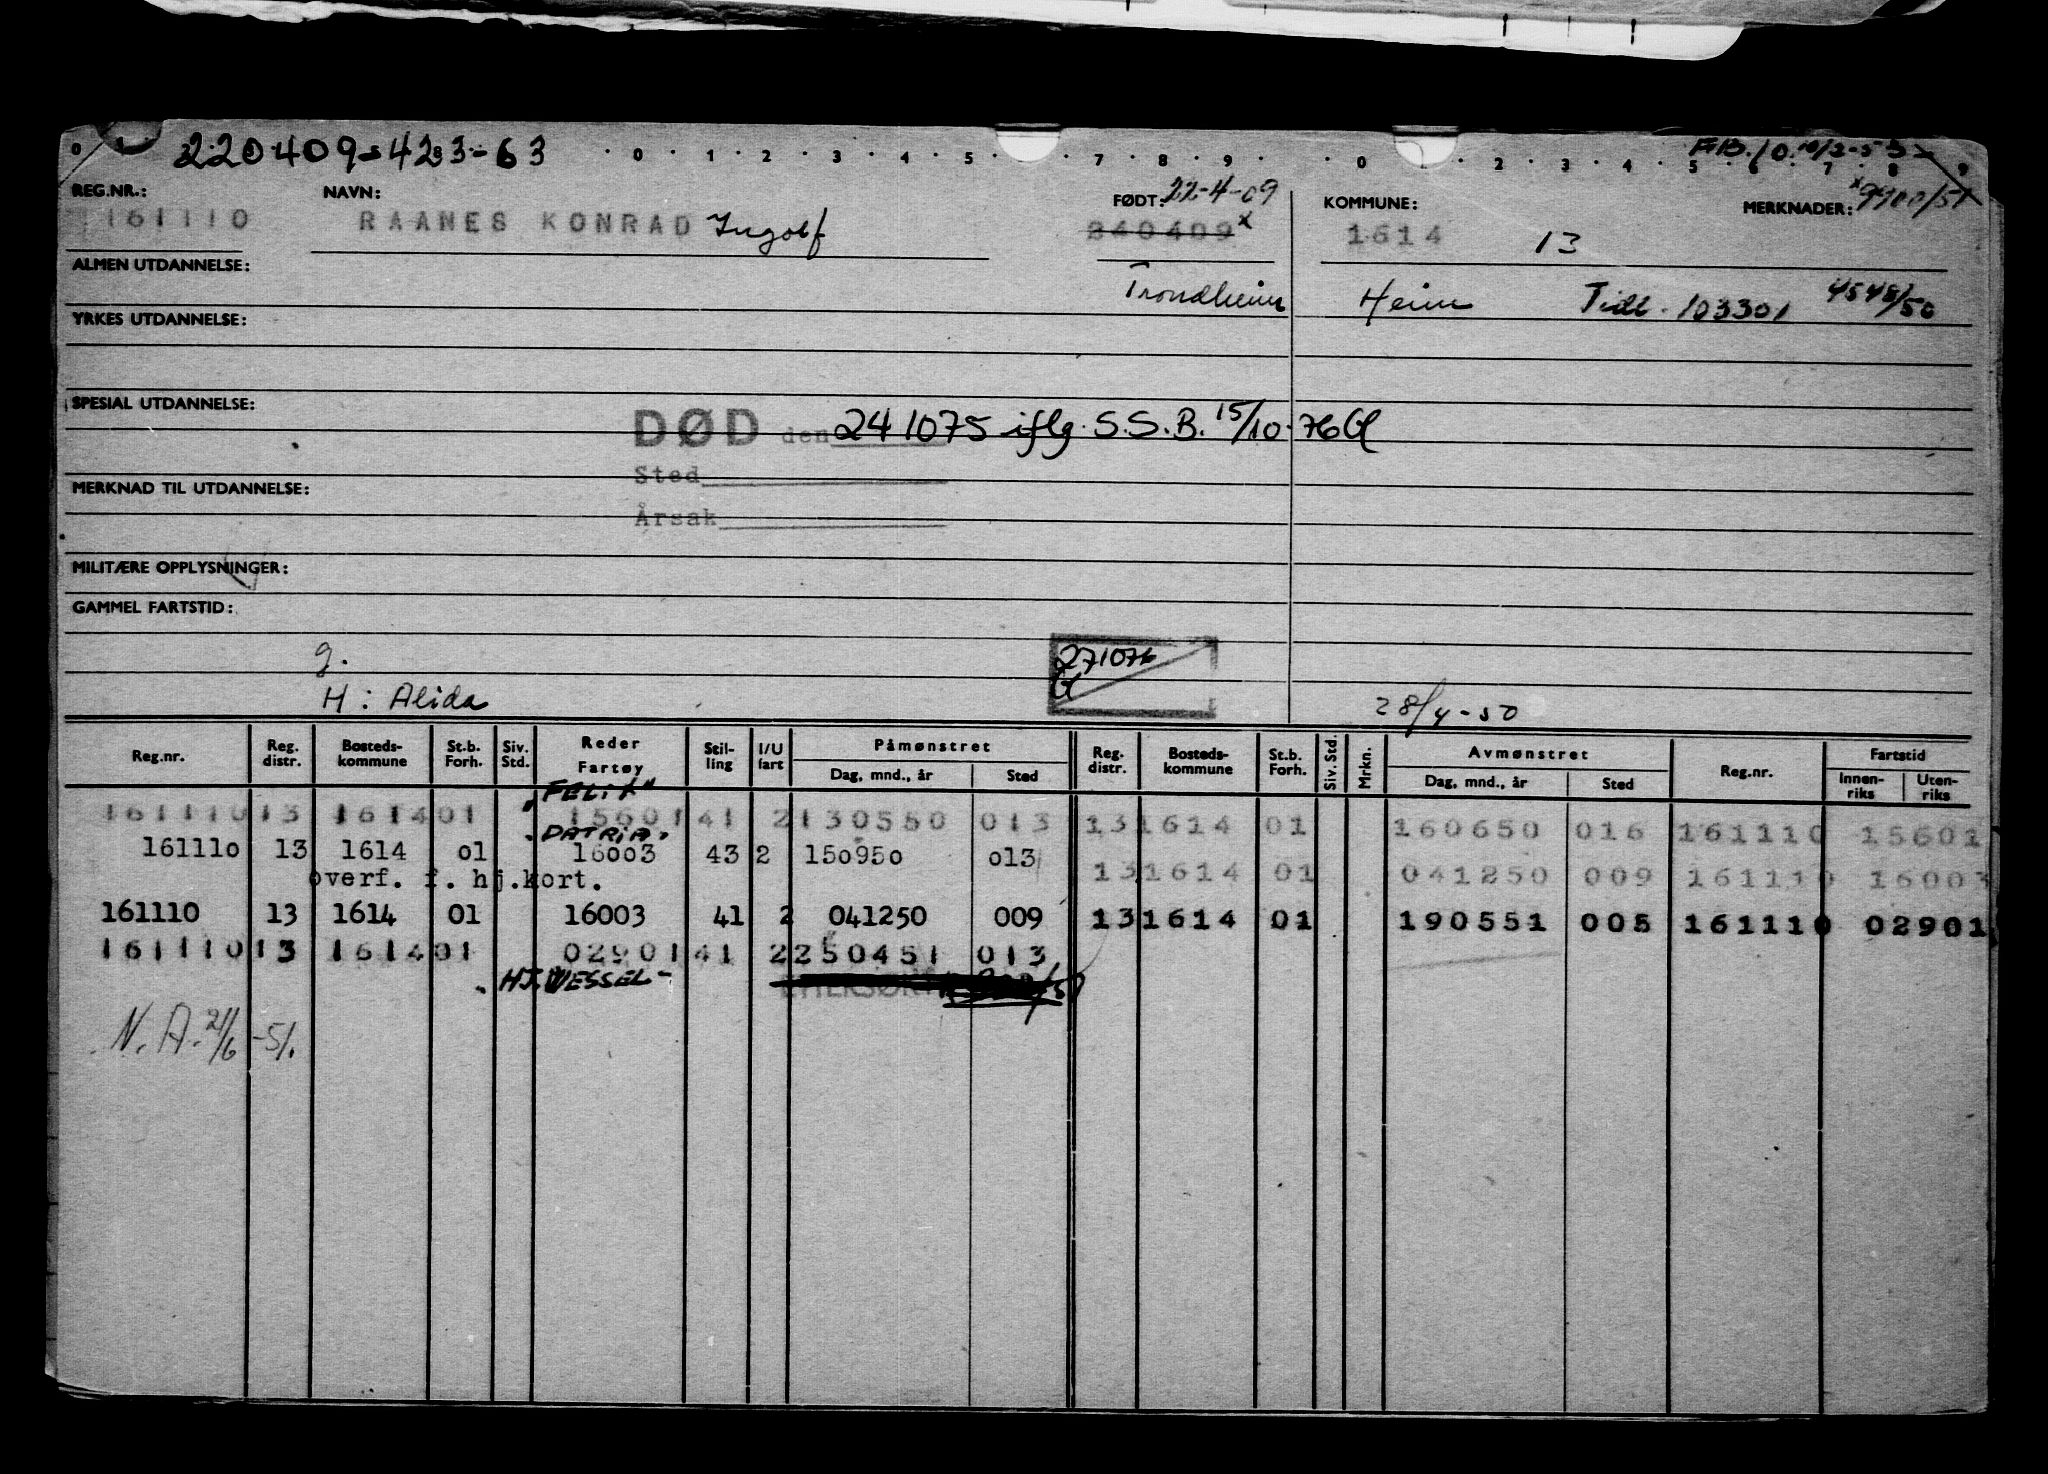 220409-42383-63 FB.10.10/2-53
REG.NR.: NAVN: FØDT: 22-4-09 KOMMUNE: MERKNADER: x 9900/51
161110 RAANES KONRAD Ingolf 240409 x 1614 13
ALMEN UTDANNELSE: Trondheim Heim Tidl. 103301 4548/50
YRKES UTDANNELSE:
SPESIAL UTDANNELSE:
DØD den 241075 iflg. S.S.B. 15/10-76 Gl
Sted
MERKNAD TIL UTDANNELSE:
Årsak
MILITÆRE OPPLYSNINGER:
GAMMEL FARTSTID:
g. 271076
Gl
H: Alida 28/4-50
Reg.nr. Reg. distr. Bosteds-kommune St.b. Forh. Siv. Std. Reder Fartøy Stil-ling I/U fart Påmønstret Dag, mnd., år Sted Reg. distr. Bosteds-kommune St.b. Forh. Siv. Std. Mrkn. Avmønstret Dag, mnd., år Sted Reg.nr. Fartstid Innen-riks Uten-riks
"FELIX"
161110 13 1614 01 15601 41 2 130550 013 13 1614 01 160650 016 161110 15601
"PATRIA"
161110 13 1614 01 16003 43 2 150950 013
overf. f. hj.kort. 13 1614 01 041250 009 161110 16003
161110 13 1614 01 16003 41 2 041250 009 13 1614 01 190551 005 161110 02901
161110 13 1614 01 02901 41 2 250451 013
"HJ. WESSEL"
N.A. 21/6-51.